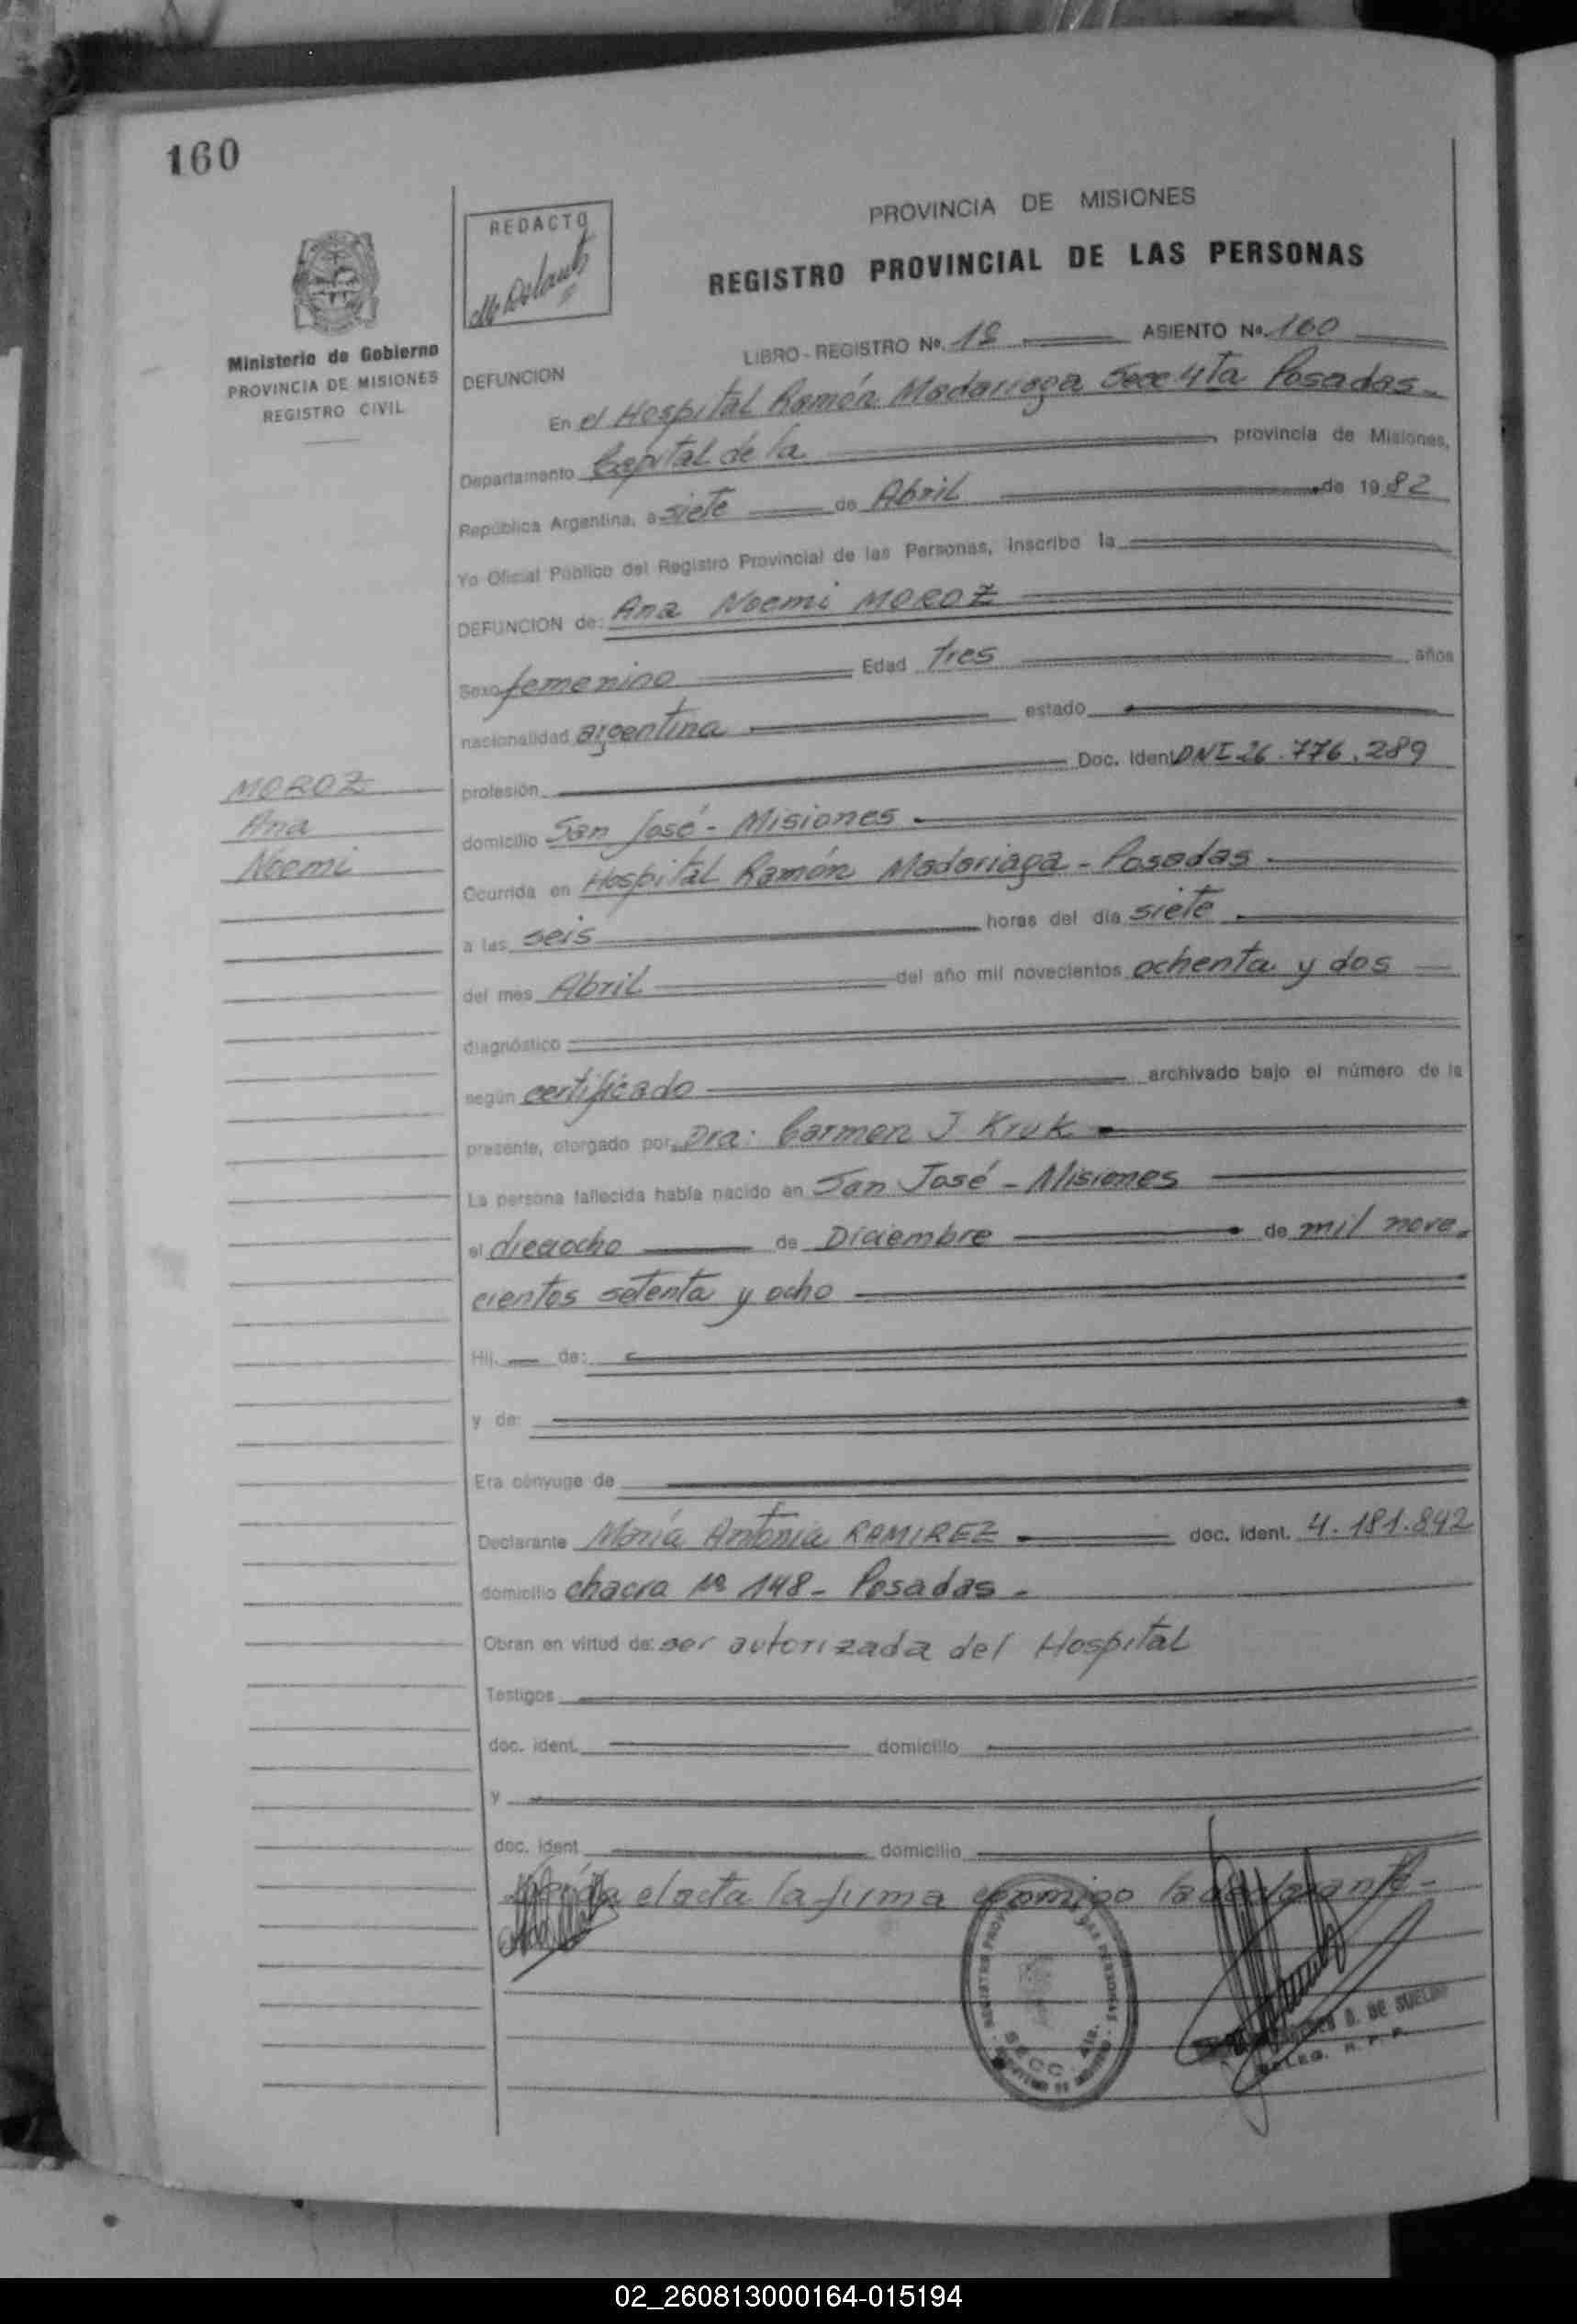 160
REDACTO
PROVINCIA DE MISIONES
REGISTRO PROVINCIAL DE LAS PERSONAS
Ministerio de Gobierno
PROVINCIA DE MISIONES
REGISTRO CIVIL
LIBRO - REGISTRO No. 18 ASIENTO No. 160
DEFUNCION
En el Hospital Ramón Madariaga Secc 4ta Posadas -
Departamento Capital de la provincia de Misiones,
República Argentina, a siete de Abril de 1982
Yo Oficial Público del Registro Provincial de las Personas, inscribo la
DEFUNCION de: Ana Noemi MOROZ
Sexo femenino Edad tres años
nacionalidad argentina estado
profesión Doc. Ident DNI 26.776.289
MOROZ
Ana
Noemi
domicilio San José - Misiones
Ocurrida en Hospital Ramón Madariaga - Posadas
a las seis horas del día siete
del mes Abril del año mil novecientos ochenta y dos
diagnóstico
según certificado archivado bajo el número de la
presente, otorgado por Dra: Carmen J Kruk
La persona fallecida había nacido en San José - Misiones
el dieciocho de Diciembre de mil nove
cientos setenta y ocho
Hij. de:
y de:
Era cónyuge de
Declarante María Antonia RAMIREZ doc. ident. 4.181.842
domicilio chacra No 148 - Posadas -
Obran en virtud de: ser autorizada del Hospital
Testigos
doc. ident. domicilio
y
doc. ident domicilio
el acta la firma conmigo la declarante -
SECC. 4ta.
D. DE SUELDO
DELEG. R. P. P.
02_260813000164-015194